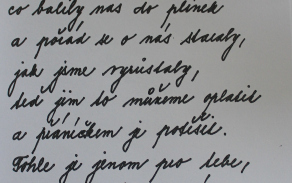 co balily nás do plínek
a pořád se o nás staraly,
jak jsme vyrůstaly,
teď jim to můžeme oplatit
a přáníčkem je potěšit.
Tohle je jenom pro tebe,